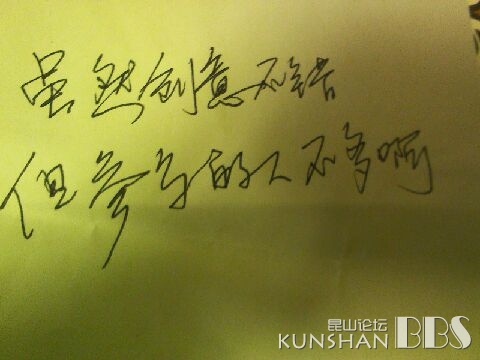 虽然创意不错
但参与的人不多啊
昆山论坛
KUNSHAN BBS